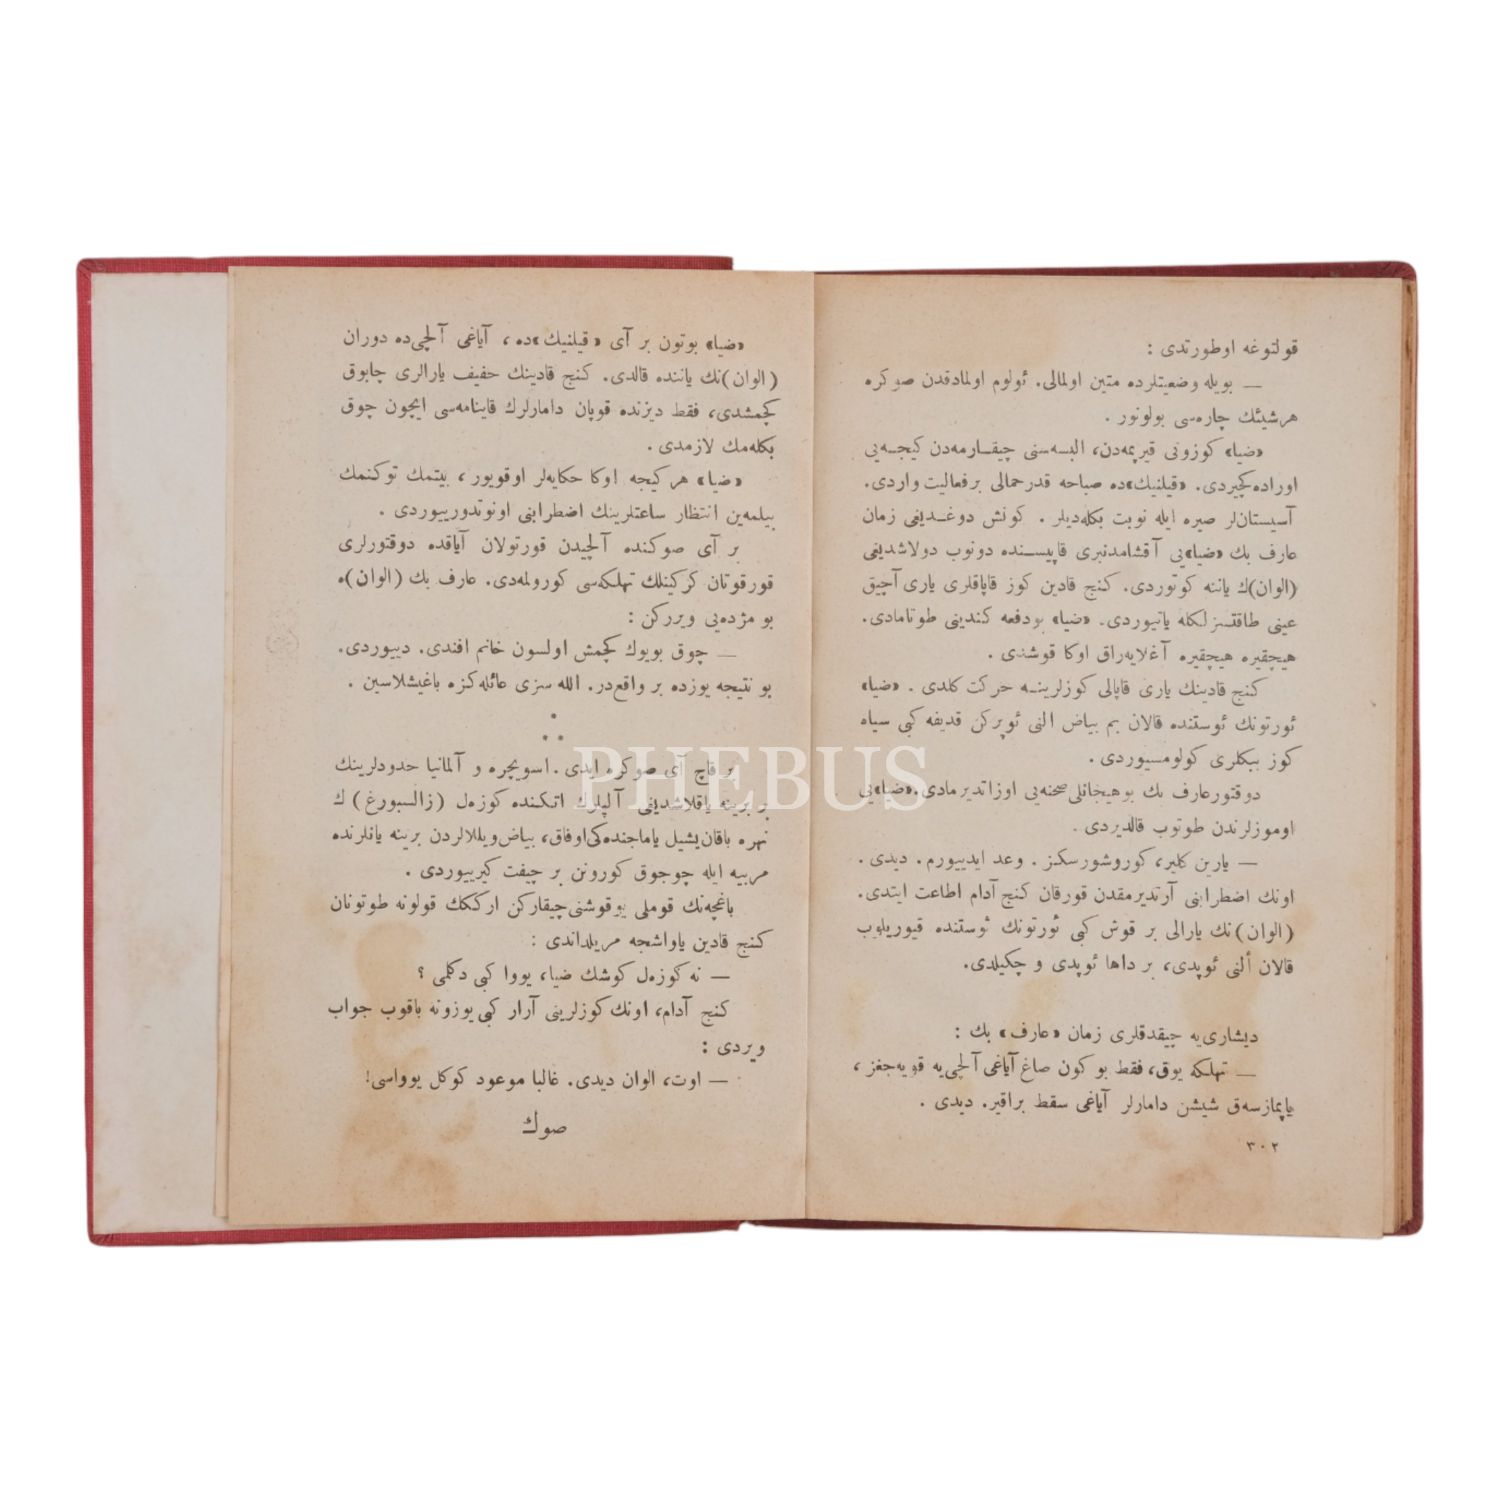 قولتوغه اوطورتدی :
— بویله وضعیتلرده متین اولمالی. ئولوم اولمادقدن صوكره
هرشیئك چاره‌سی بولونور .
«ضیا» كوزونی قیرپمه‌دن، البسه‌سنی چیقارمه‌دن كیجه‌یی
اوراده كچیردی. «قیلنیك»ده صباحه قدر حمالی بر فعالیت واردی.
آسیستان‌لر صیره ایله نوبت بكله‌دیلر . كونش دوغدیغی زمان
عارف بك «ضیا»یی آقشامدنبری قاپیسنده دونوب دولاشدیغی
(الوان)ك یاننه كوتوردی. كنج قادین كوز قاپاقلری یاری آچیق
عینی طاقتسزلكله یاتیوردی. «ضیا» بودفعه كندینی طوتامادی.
هیچقیره هیچقیره آغلایه‌راق اوكا قوشدی .
كنج قادینك یاری قاپالی كوزلرینه حركت كلدی . «ضیا»
ئورتونك ئوستنده قالان بم بیاض النی ئوپركن قدیفه كبی سیاه
كوز ببكلری كولومسیوردی .
دوقتور عارف بك بو هیجانلی صحنه‌یی اوزاتدیرمادی. «ضیا»یی
اوموزلرندن طوتوب قالدیردی .
— یارین كلیر، كوروشورسكز . وعد ایدییورم . دیدی .
اونك اضطرابنی آرتدیرمقدن قورقان كنج آدام اطاعت ایتدی.
(الوان)نك یارالی بر قوش كبی ئورتونك ئوستنده قیوریلوب
قالان ألنی ئوپدی، بر داها ئوپدی و چكیلدی.
دیشاری‌یه چیقدقلری زمان «عارف» بك :
— تهلكه یوق، فقط بو كون صاغ آیاغی آلچی‌یه قویه‌جغز ،
یاپمازسه‌ق شیشن دامارلر آیاغی سقط براقیر. دیدی .
٣٠٢
«ضیا» بوتون بر آی «قیلنیك»ده ، آیاغی آلچی‌ده دوران
(الوان)نك یاننده قالدی. كنج قادینك حفیف یارالری چابوق
كچمشدی، فقط دیزنده قوپان دامارلرك قاینامه‌سی ایچون چوق
بكله‌مك لازمدی .
«ضیا» هر كیجه اوكا حكایه‌لر اوقویور ، بیتمك توكنمك
بیلمه‌ین انتظار ساعتلرینك اضطرابنی اونوتدورییوردی .
بر آی صوكنده آلچیدن قورتولان آیاقده دوقتورلری
قورقوتان كركینلك تهلكه‌سی كورولمه‌دی. عارف بك (الوان)ه
بو مژده‌یی ویرركن :
— چوق بویوك كچمش اولسون خانم افندی. دییوردی.
بو نتیجه یوزده بر واقع‌در. الله سزی عائله‌كزه باغیشلاسین .
⁂
بر قاچ آی صوكره ایدی . اسویچره و آلمانیا حدودلرینك
بر برینه یاقلاشدیغی آلپلرك اتكنده كوزه‌ل (زالسبورغ) ك
نهره باقان یشیل یاماجنده‌كی اوفاق، بیاض ویللالردن برینه یانلرنده
مربیه ایله چوجوق كورونن بر چیفت كیرییوردی .
باغچه‌نك قوملی یوقوشنی چیقاركن اركك‌ك قولونه طوتونان
كنج قادین یاواشجه مریلداندی :
— نه كوزه‌ل كوشك ضیا، یووا كبی دكلمی ؟
كنج آدام، اونك كوزلرینی آرار كبی یوزونه باقوب جواب
ویردی :
— اوت، الوان دیدی. غالبا موعود كوكل یوواسی!
صوك
PHEBUS